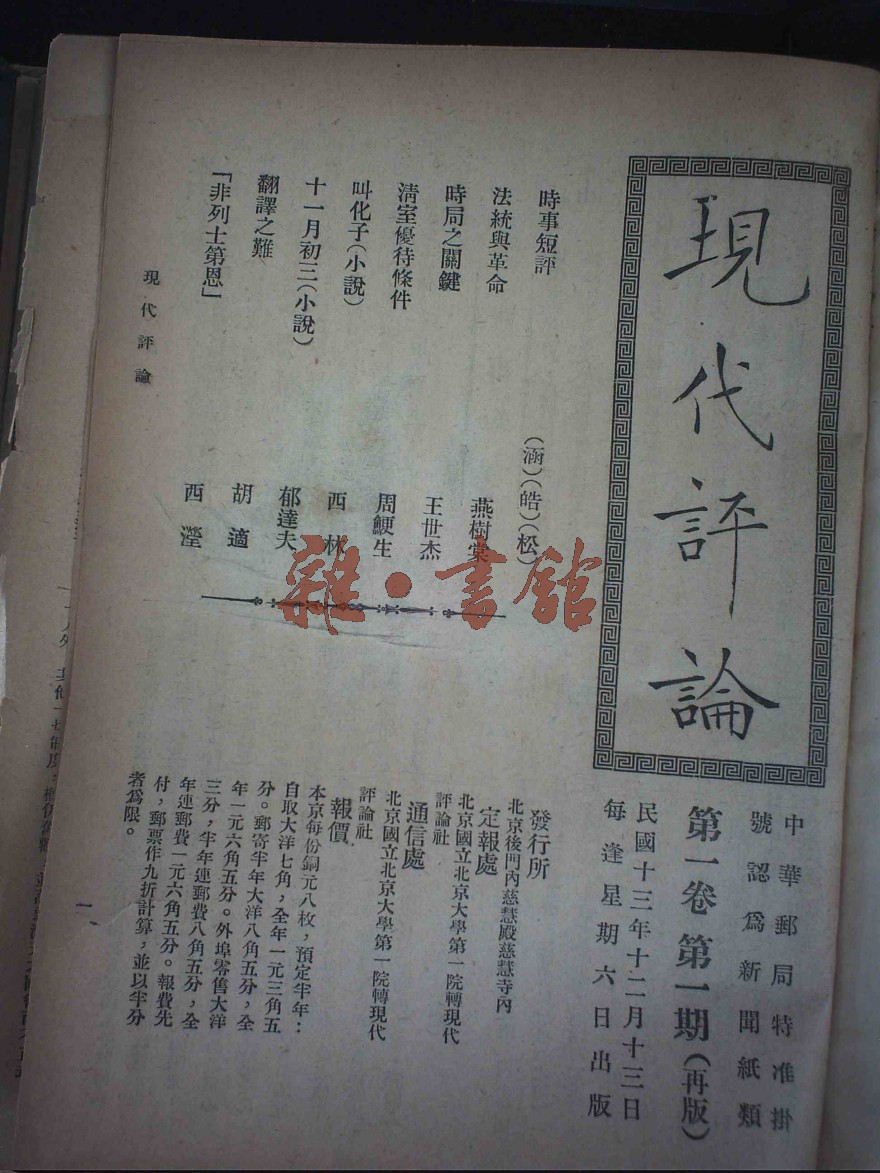 現代評論
中華郵局特准掛
號認為新聞紙類
第一卷第一期(再版)
民國十三年十二月十三日
每逢星期六日出版
時事短評
(涵)(皓)(松)
法統與革命
燕樹棠
時局之關鍵
王世杰
清室優待條件
周鯁生
叫化子(小說)
西林
十一月初三(小說)
郁達夫
翻譯之難
胡適
「非列士第恩」
西瀅
發行所
北京後門內慈慧殿慈慧寺內
定報處
北京國立北京大學第一院轉現代
評論社
通信處
北京國立北京大學第一院轉現代
評論社
報價
本京每份銅元八枚,預定半年:
自取大洋七角,全年一元三角五
分。郵寄半年大洋八角五分,全
年一元六角五分。外埠零售大洋
三分,半年連郵費八角五分,全
年連郵費一元六角五分。報費先
付,郵票作九折計算,並以半分
者為限。
現代評論
一
雜·書館